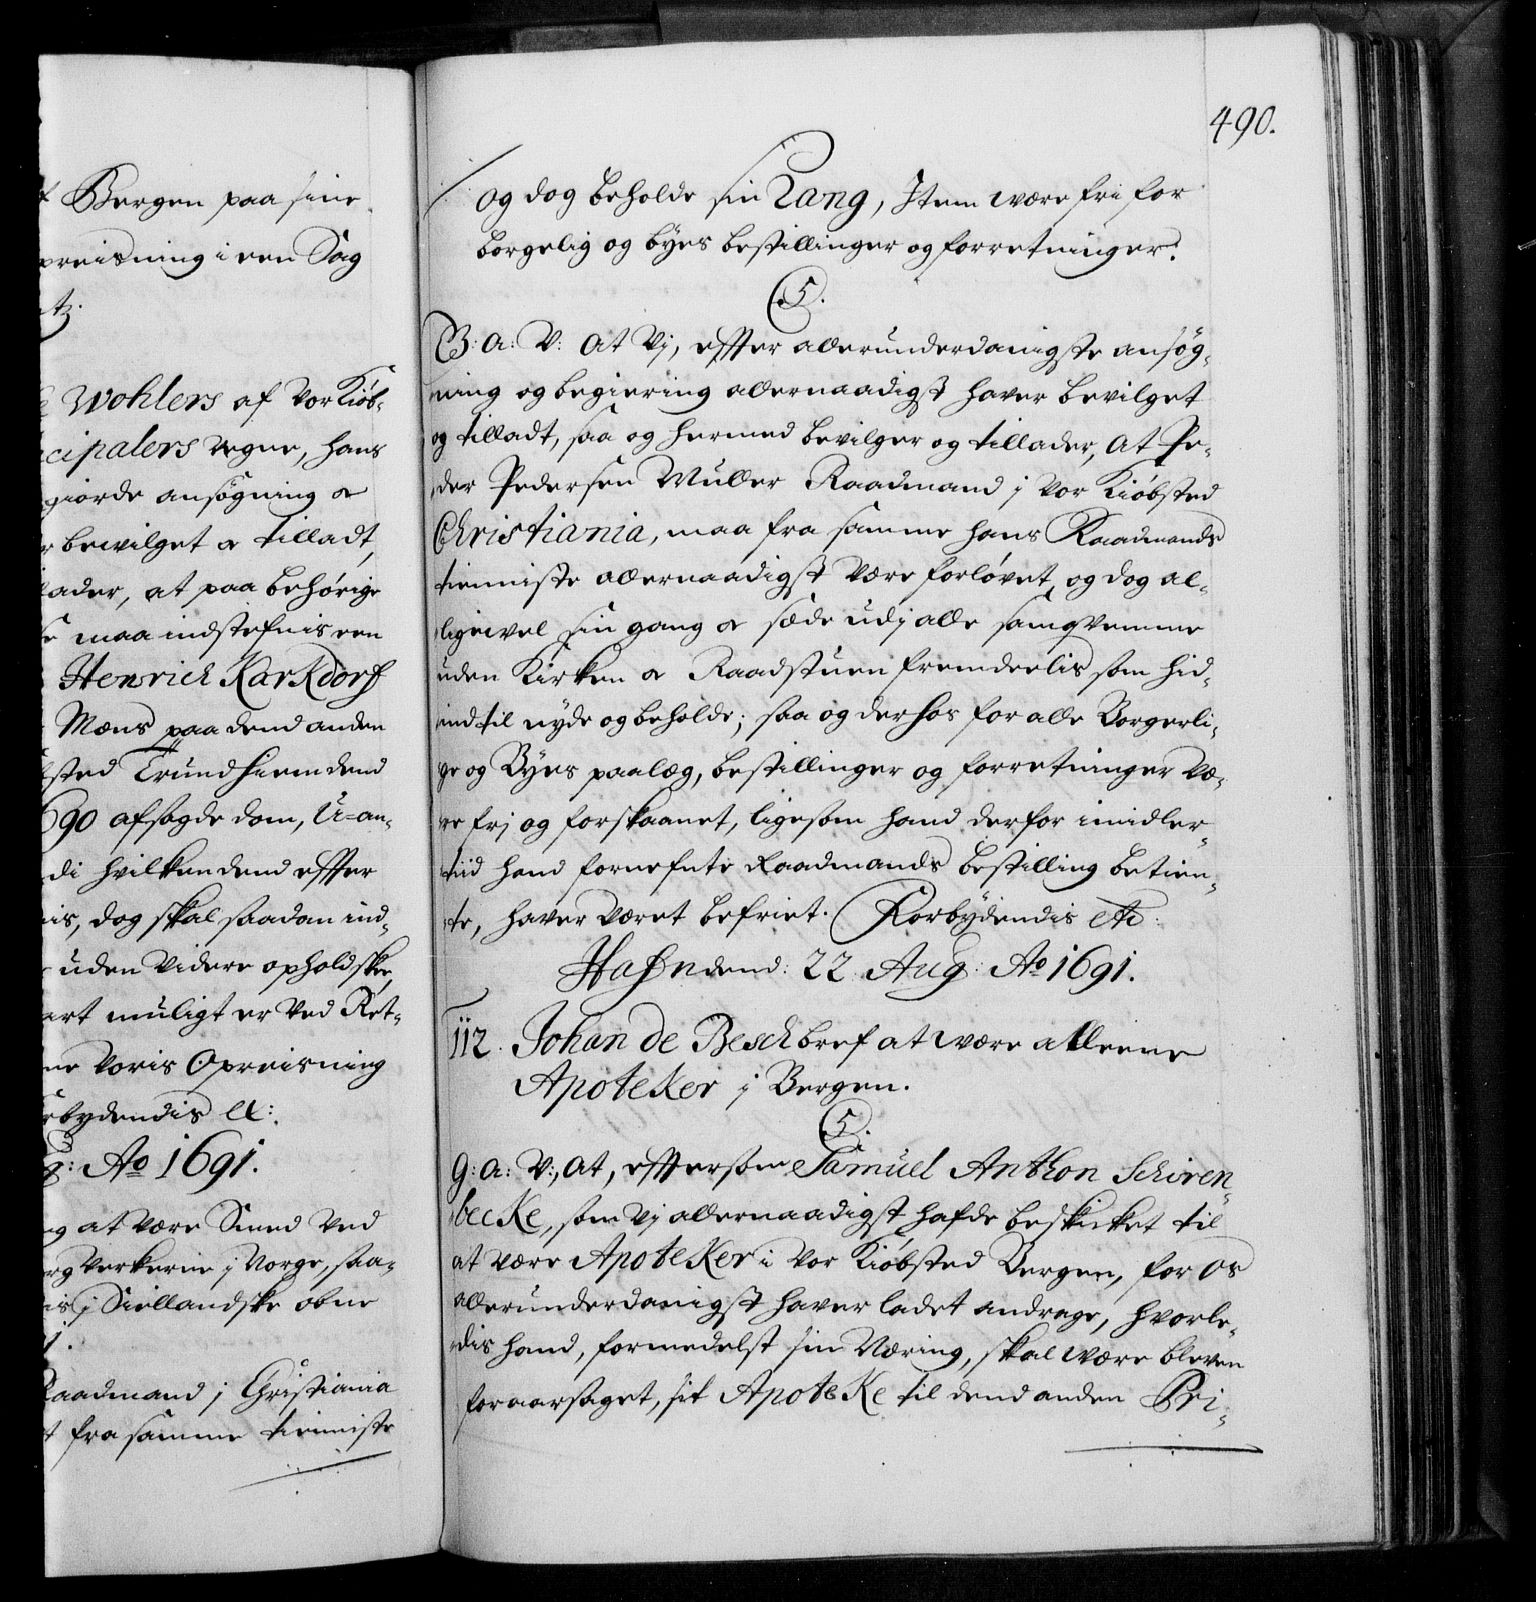 Bergen paa sine
preisning i een Sag
tz.
Wohlers af Vor Kiøb-
cipalers vegne, hans
giorde ansøgning &
bewilget & tilladt,
lader, at paa behørige
maa indstefnis een
Henrich Karkdorf
Mæns paa dend anden
sted Trundhiem dend
690 afsagde dom, U=an-
di hvilken dend effter
is, dog skal saadan ind-
uden videre ophold skee,
art muligt er ved Ret-
ne Voris Opreisning
rbydendis etc:
g: Ao 1691.
g at være Smed ved
rg Verkerne j Norge, saa-
is j Siellandske obne
j.
Raadmand j Christiania
t fra samme tieniste
490.
og dog beholde sin Rang, Item være fri for
borgelig og byes bestillinger og forretninger.
5.
G: A: V: At Vj, effter allerunderdanigste ansøg-
ning og begiering allernaadigst haver bevilget
og tilladt, saa og hermed bevilger og tillader, At Pe-
der Pedersen Muller Raadmand j Vor Kiøbsted
Christiania, maa fra samme hans Raadmands
tienniste allernaadigst være forløvet, og dog al-
ligevel sin gang & sæde udj alle samqvemme
uden Kirken & Raadstuen fremdeelis som hid-
ind til nyde og beholde; saa og derhos for alle Borgerli-
ge og Byes paalæg, bestillinger og forretninger væ-
re frj og forskaanet, ligesom hand derfor imidler-
tiid hand fornefnte Raadmands bestilling betien-
te, haver været befriet. Forbydendis etc:
Hafn dend: 22 Aug: Ao 1691.
112. Johan de Besch bref at være alleene
Apoteker j Bergen.
5.
G: A: V:, At, efftersom Samuel Anthon Schiren-
becke, som Vj allernaadigst hafde beskicket til
at være Apoteker i Vor Kiøbsted Bergen, for Os
allerunderdanigst haver ladet andrage, hvorle-
dis hand, formedelst sin Næring, skal være bleven
foraarsaget, sit Apoteke til dend anden Pri-